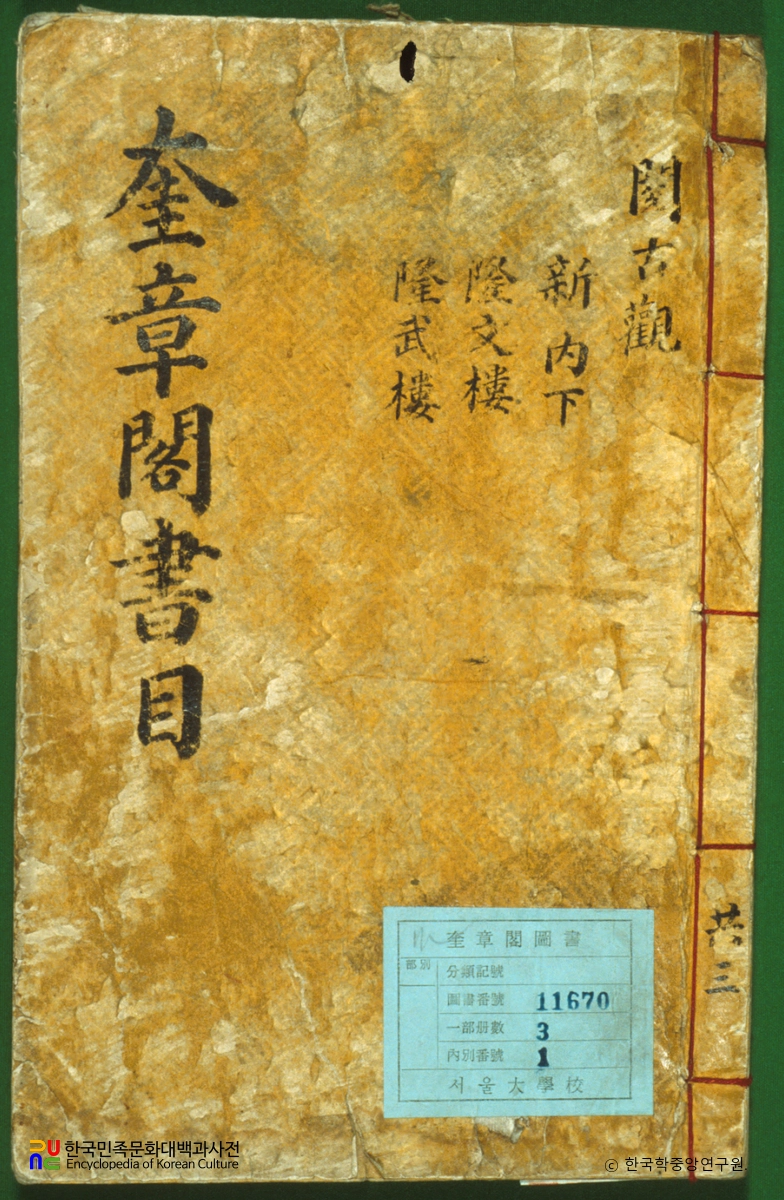 奎章閣書目
閱古觀
新內下
隆文樓
隆武樓
共三
奎章閣圖書
部別
分類記號
圖書番號 11670
一部冊數 3
內別番號 1
서울大學校
한국민족문화대백과사전
Encyclopedia of Korean Culture
© 한국학중앙연구원